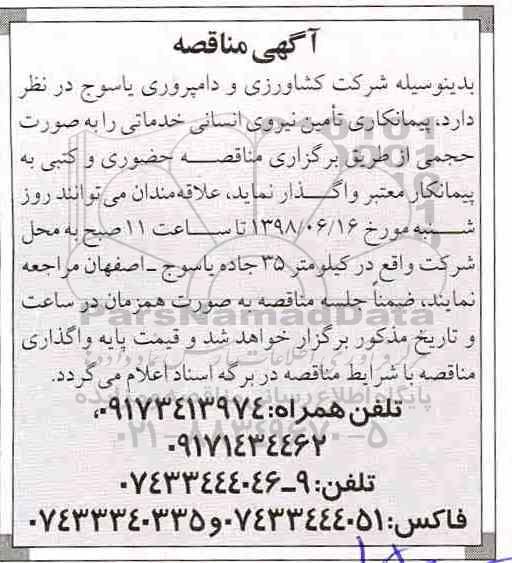 آگهی مناقصه
بدینوسیله شرکت کشاورزی و دامپروری یاسوج در نظر
دارد، پیمانکاری تأمین نیروی انسانی خدماتی را به صورت
حجمی از طریق برگزاری مناقصه حضوری و کتبی به
پیمانکار معتبر واگذار نماید، علاقه‌مندان می‌توانند روز
شنبه مورخ ۱۳۹۸/۰۶/۱۶ تا ساعت ۱۱ صبح به محل
شرکت واقع در کیلومتر ۳۵ جاده یاسوج ـ اصفهان مراجعه
نمایند، ضمناً جلسه مناقصه به صورت همزمان در ساعت
ParsNamadData
و تاریخ مذکور برگزار خواهد شد و قیمت پایه واگذاری
مناقصه با شرایط مناقصه در برگه اسناد اعلام می‌گردد.
پایگاه اطلاع رسانی
تلفن همراه: ۰۹۱۷۳۴۱۳۹۷۴،
۰۲۱-۸۸۳۴۹۶۷۰-۵
۰۹۱۷۱۴۳۴۴۶۲
تلفن: ۹ـ۰۷۴۳۳۴۴۴۰۴۶
فاکس: ۰۷۴۳۳۴۴۴۰۵۱ و ۰۷۴۳۳۳۴۰۳۳۵